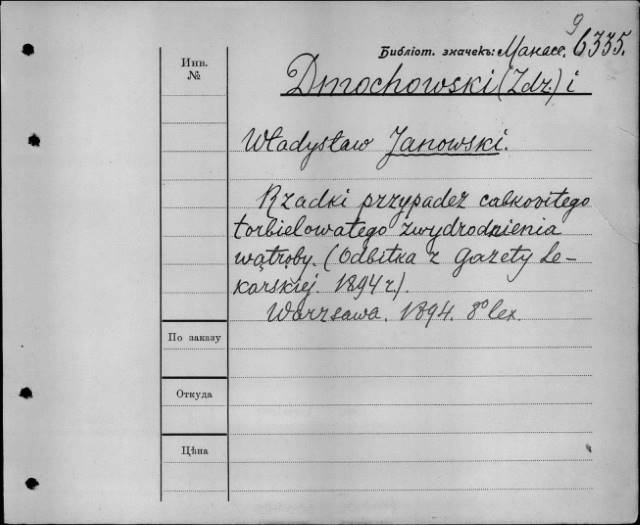 9
Библіот. значекъ: Манасс. 6335.
Инв.
№
Dmochowski (Zdz.) i
Władysław Janowski.
Rzadki przypadek całkovitego
torbielowatego zwydrodnienia
wątroby. (Odbitka z Gazety Le-
karskiej. 1894 r.).
Warszawa. 1894. 8° lex.
По заказу
Откуда
Цѣна